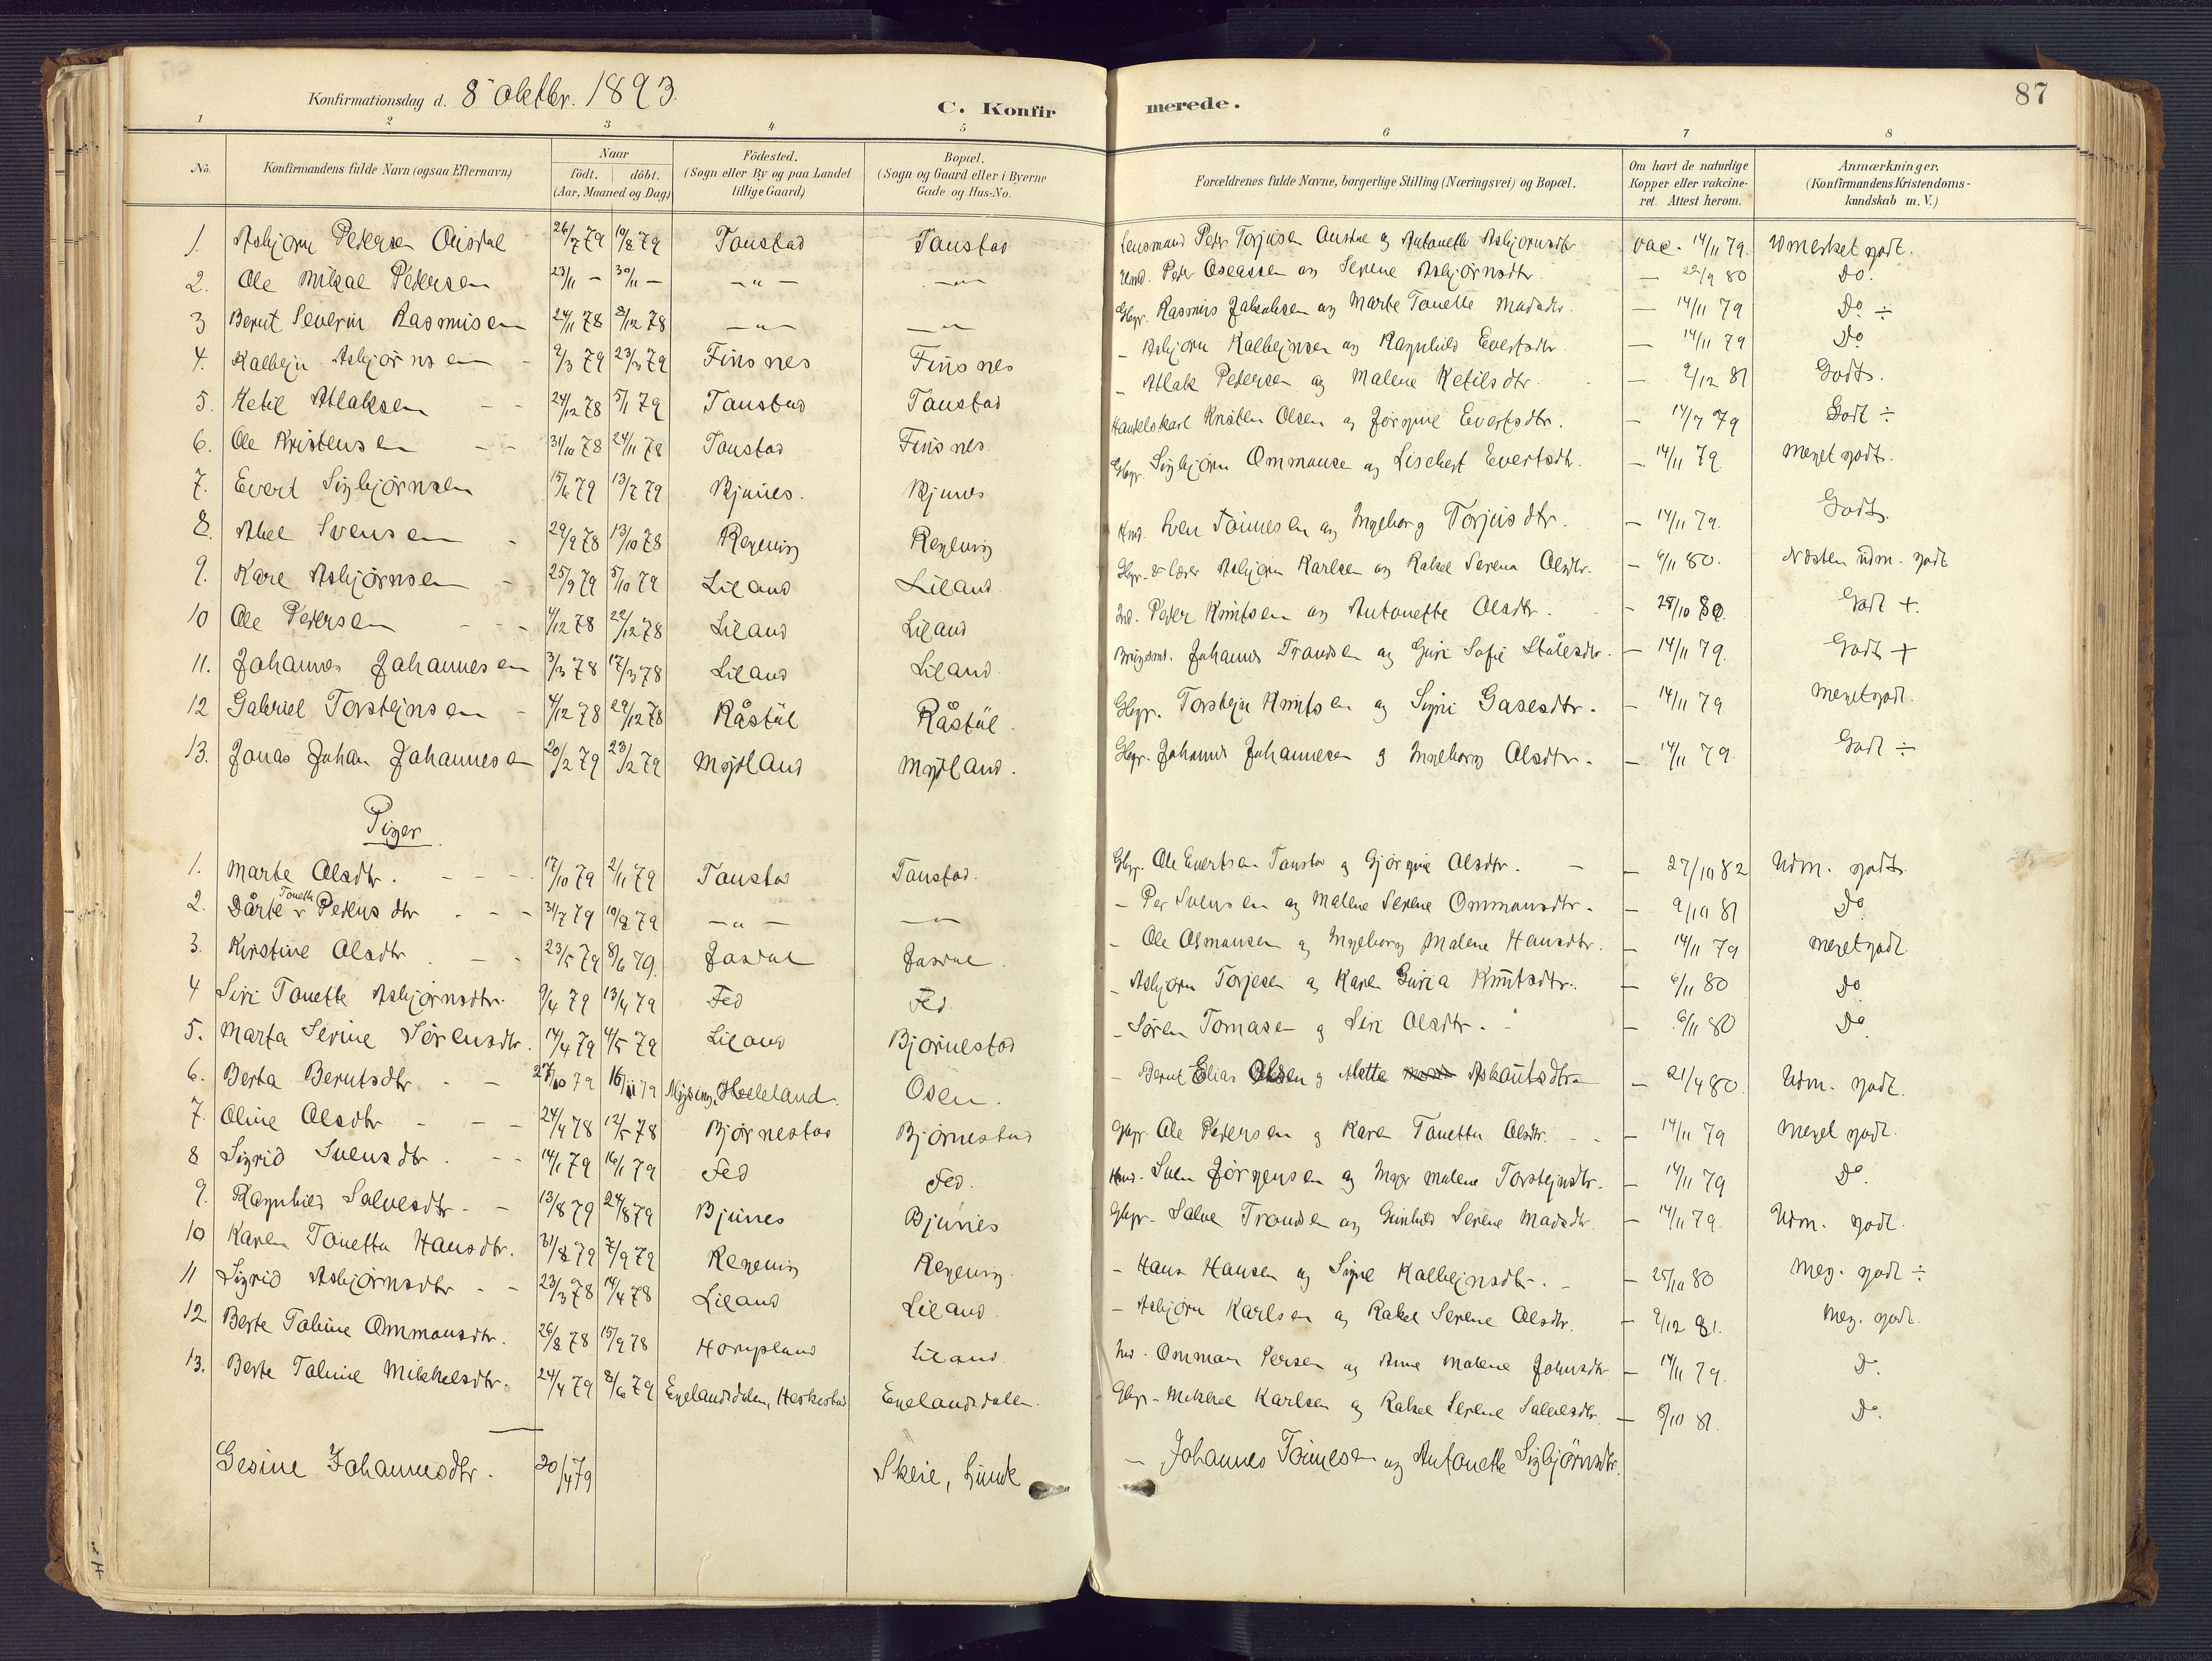 87
Konfirmationsdag d. 8 oktbr. 1893.
C. Konfirmerede.
1 2 3 4 5 6 7 8
No. Konfirmandens fulde Navn (ogsaa Efternavn) Naar födt. döbt. (Aar, Maaned og Dag) Födested. (Sogn eller By og paa Landet tillige Gaard) Bopæl. (Sogn og Gaard eller i Byerne Gade og Hus-No. Forældrenes fulde Navne, borgerlige Stilling (Næringsvei) og Bopæl. Om havt de naturlige Kopper eller vakcineret. Attest herom. Anmærkninger. (Konfirmandens Kristendomskundskab m. V.)
1. Asbjørn Pedersen 26/7 79 10/8 79 Tonstad Tonstad Lensmand Peder Torjusen og Antonette Asbjørnsdtr. vac. 14/11 79. Udmerket godt.
2. Ole Mikal Pedersen 23/11 - 30/11 - -"- -"- Peder Oseassen og Serene Asbjørnsdtr. - 22/9 80 Do.
3 Bernt Severin Rasmusen 24/11 78 8/12 78 -"- -"- Gbgr. Rasmus Jakobsen og Marte Tonette Madsdtr. - 14/11 79 Do ÷
4. Kalbejn Asbjørnsen 9/3 79 23/3 79 Finsnes Finsnes - Asbjørn Kalbejnsen og Ragnhild Evertsdtr. - 14/11 79 Do
5. Ketil Atlaksen 24/12 78 5/1 79 Tonstad Tonstad - Atlak Pedersen og Malene Ketilsdtr. - 9/12 81 Godt.
6. Ole Kristensen 31/10 78 24/11 78 Tonstad Finsnes. Handelskarl Kristen Olsen og Jørgine Evertsdtr. - 14/7 79 Godt ÷
7. Evert Sigbjørnsen 15/6 79 13/7 79 Bjunes. Bjunes Gbgr. Sigbjørn Ommonsen og Lisebet Evertsdtr. - 14/11 79 Meget godt.
8. Abel Svensen 29/9 78 13/10 78 Regevig Regevig Sven Tønnesen og Ingeborg Torjusdtr. - 14/11 79. Godt.
9. Karl Asbjørnsen 25/9 79 5/10 79 Liland Liland Gbgr. Asbjørn Karlsen og Rakel Serena Olsdtr. - 6/11 80. Næsten udm. godt
10 Ole Pedersen 4/12 78 22/12 78 Liland Liland Ind. Peder Knutsen og Antonette Olsdtr. - 28/10 80. Godt +.
11. Johannes Johannesen 3/3 78 17/3 78 Liland Liland. Johannes Trondsen og Guri Sofie Stålesdtr. - 14/11 79. Godt +
12 Gabriel Torstejnsen 4/12 78 29/12 78 Råstøl Råstøl. Gbgr. Torstejn Knutsen og Signi Gasesdtr. - 14/11 79 Meget godt.
13. Jonas Johan Johannesen 20/2 79 23/2 79 Mydland Mydland. Gbgr. Johannes Johannesen og Ingeborg Olsdtr. - 14/11 79. Godt ÷
Piger
1. Marte Olsdtr. 17/10 79 2/11 79 Tonstad Tonstad. Gbgr. Ole Evertsen Tonstad og Gjørgine Olsdtr. - 27/10 82 Udm. godt.
2. Dårte Tonette Pedersdtr 31/7 79 10/8 79 -"- -"- - Per Svensen og Malene Serene Ommonsdtr. - 9/10 81 Do
3. Kirstine Olsdtr. 23/5 79 8/6 79. Josdal Josdal. - Ole Osmonsen og Ingeborg Malene Hansdtr. - 14/11 79 Meget godt.
4 Siri Tonette Asbjørnsdtr. 9/4 79 13/4 79 Fed Fed. - Asbjørn Torjesen og Karen Guria Knutsdtr. - 6/11 80 Do
5. Marta Serine Sørensdtr. 14/4 79 4/5 79 Liland Bjørnestad - Søren Tomasen og Siri Olsdtr. - 6/11 80 Do
6. Berta Berntsdtr 27/10 79 16/11 79 Helleland. Osen. - Bernt Elias Olsen og Alette Askautsdtr - 21/4 80. Udm. godt.
7. Oline Olsdtr 24/4 78 12/5 78 Bjørnestad Bjørnestad Gbgr. Ole Pedersen og Karen Tonette Olsdtr. - 14/11 79 Meget godt.
8 Sigrid Svensdtr. 14/1 79 16/1 79 Fed Fed. Sven Jørgensen og Malene Torstejnsdtr. - 14/11 79 Do.
9. Ragnhild Salvesdtr. 13/8 79 24/8 79 Bjunes Bjunes Gbgr. Salve Trondsen og Gunhild Serene Madsdtr. - 14/11 79. Udm. godt.
10 Karen Tonetta Hansdtr. 31/8 79 7/9 79 Regevig Regevig. - Hans Hansen og Signe Kalbejnsdtr. - 25/10 80 Meg. godt ÷
11 Sigrid Asbjørnsdtr 23/3 78 14/4 78 Liland Liland. - Asbjørn Karlsen og Rakel Serene Olsdtr. - 9/12 81. Meg. godt.
12. Berte Tobine Ommonsdtr. 26/8 78 15/9 78 Liland. Ind. Ommon Persen og Anne Malene Johnsdtr - 14/11 79. Do.
13. Berte Toline Mikkelsdtr. 24/4 79 8/6 79 Egelandsdalen, Heskestad Egelandsdalen. Gbgr. Mikkel Karlsen og Rakel Serene Salvesdtr. - 8/10 81. Do.
Gesine Johannesdtr. 20/4 79 Skeie, Lund - Johannes Tønnesen og Antonette Sigbjørnsdtr.